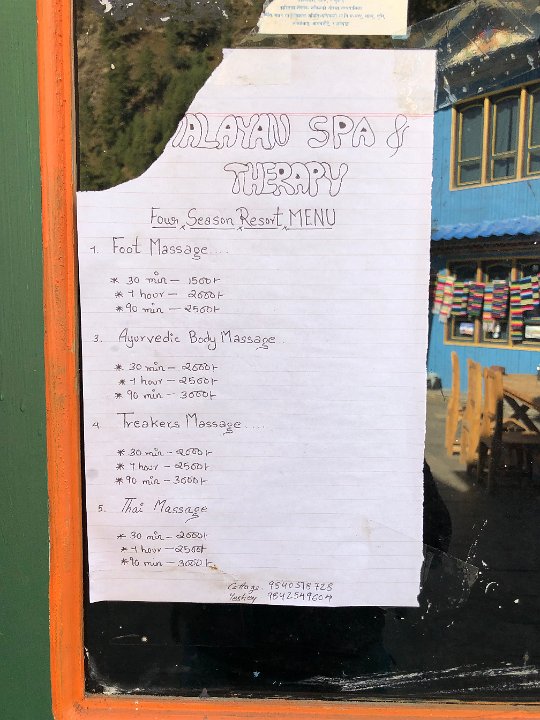 ALAYAN SPA &
THERAPY
Four Season Resort MENU
1. Foot Massage....
* 30 min - 1500/-
* 1 hour - 2000/-
* 90 min - 2500/-
3. Ayurvedic Body Massage.
* 30 min - 2000/-
* 1 hour - 2500/-
* 90 min - 3000/-
4. Treakers Massage....
* 30 min - 2000/-
* 1 hour - 2500/-
* 90 min - 3000/-
5. Thai Massage
* 30 min - 2000/-
* 1 hour - 2500/-
* 90 min - 3000/-
9842549604